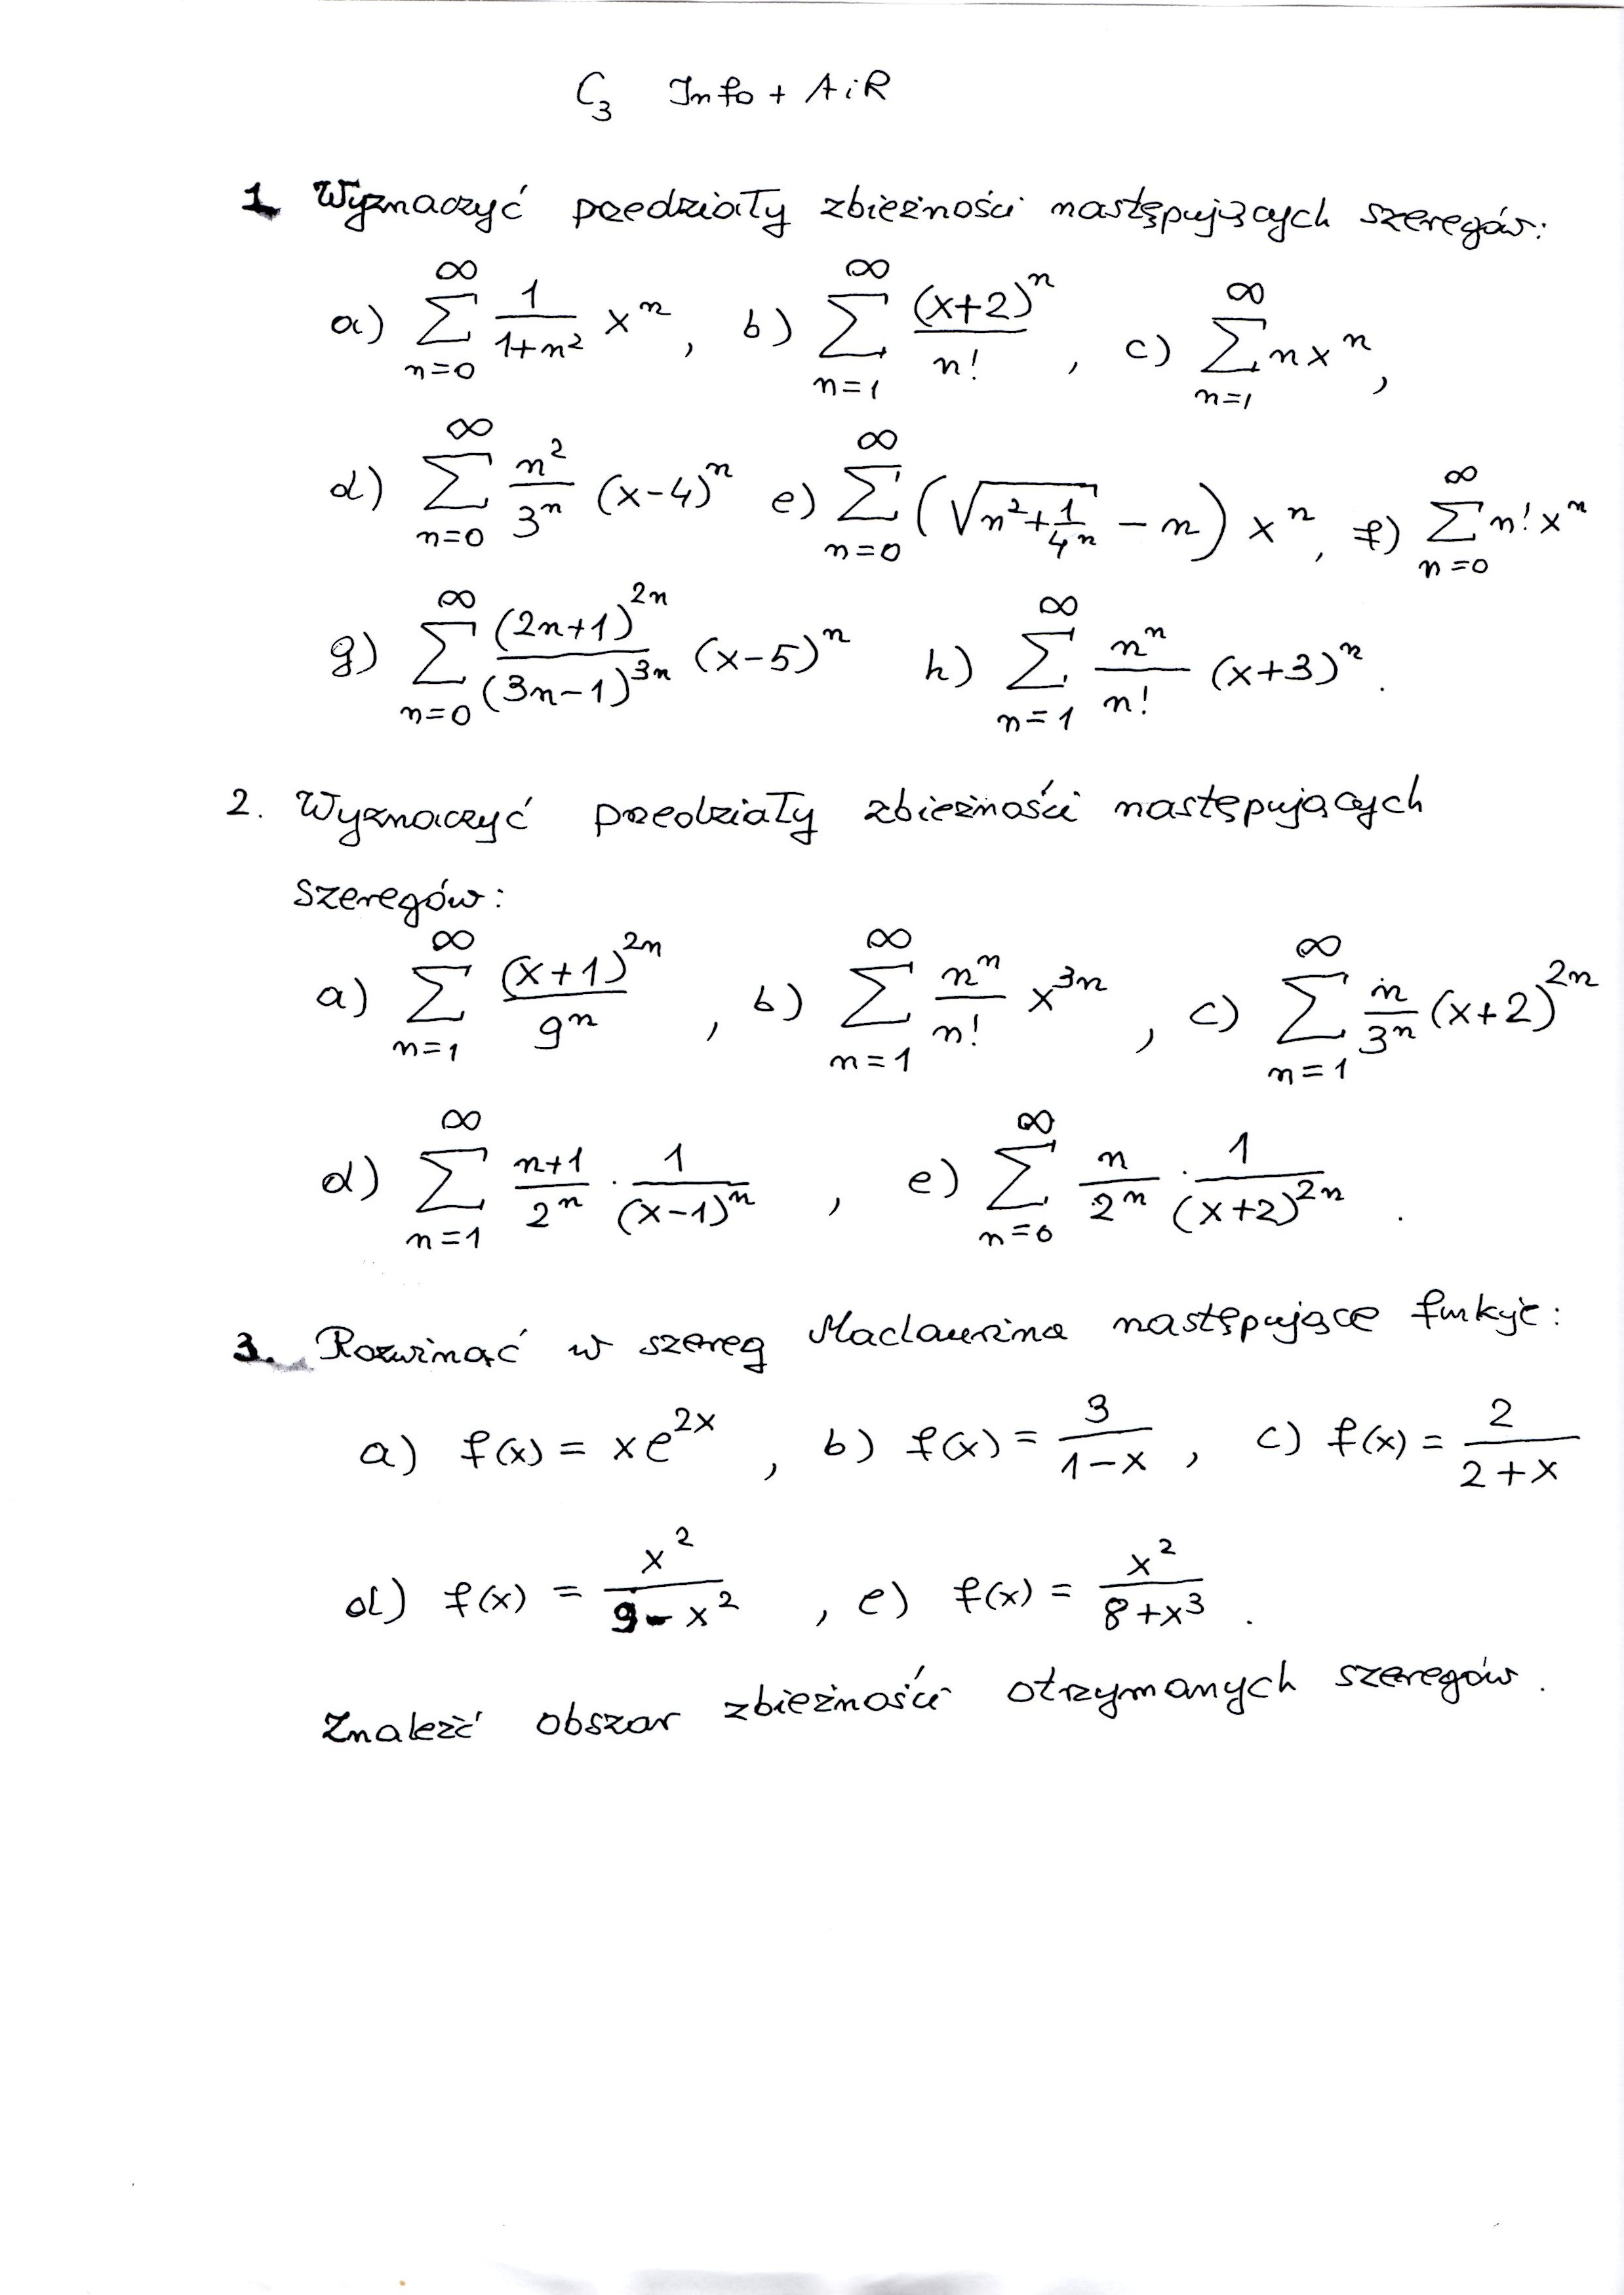 C₃ Info + AiR
1. Wyznaczyć przedziały zbieżności następujących szeregów:
a) $\sum_{n=0}^{\infty} \frac{1}{1+n^2} x^n$, b) $\sum_{n=1}^{\infty} \frac{(x+2)^n}{n!}$, c) $\sum_{n=1}^{\infty} n x^n$,
d) $\sum_{n=0}^{\infty} \frac{n^2}{3^n} (x-4)^n$ e) $\sum_{n=0}^{\infty} \left(\sqrt{n^2+\frac{1}{4^n}} - n\right) x^n$, f) $\sum_{n=0}^{\infty} n! x^n$
g) $\sum_{n=0}^{\infty} \frac{(2n+1)^{2n}}{(3n-1)^{3n}} (x-5)^n$ h) $\sum_{n=1}^{\infty} \frac{n^n}{n!} (x+3)^n$.
2. Wyznaczyć przedziały zbieżności następujących
szeregów:
a) $\sum_{n=1}^{\infty} \frac{(x+1)^{2n}}{9^n}$, b) $\sum_{n=1}^{\infty} \frac{n^n}{n!} x^{3n}$, c) $\sum_{n=1}^{\infty} \frac{n}{3^n} (x+2)^{2n}$
d) $\sum_{n=1}^{\infty} \frac{n+1}{2^n} \cdot \frac{1}{(x-1)^n}$, e) $\sum_{n=0}^{\infty} \frac{n}{2^n} \cdot \frac{1}{(x+2)^{2n}}$.
3. Rozwinąć w szereg Maclaurina następujące funkje:
a) $f(x) = x e^{2x}$, b) $f(x) = \frac{3}{1-x}$, c) $f(x) = \frac{2}{2+x}$
d) $f(x) = \frac{x^2}{9-x^2}$, e) $f(x) = \frac{x^2}{8+x^3}$.
Znaleźć obszar zbieżności otrzymanych szeregów.